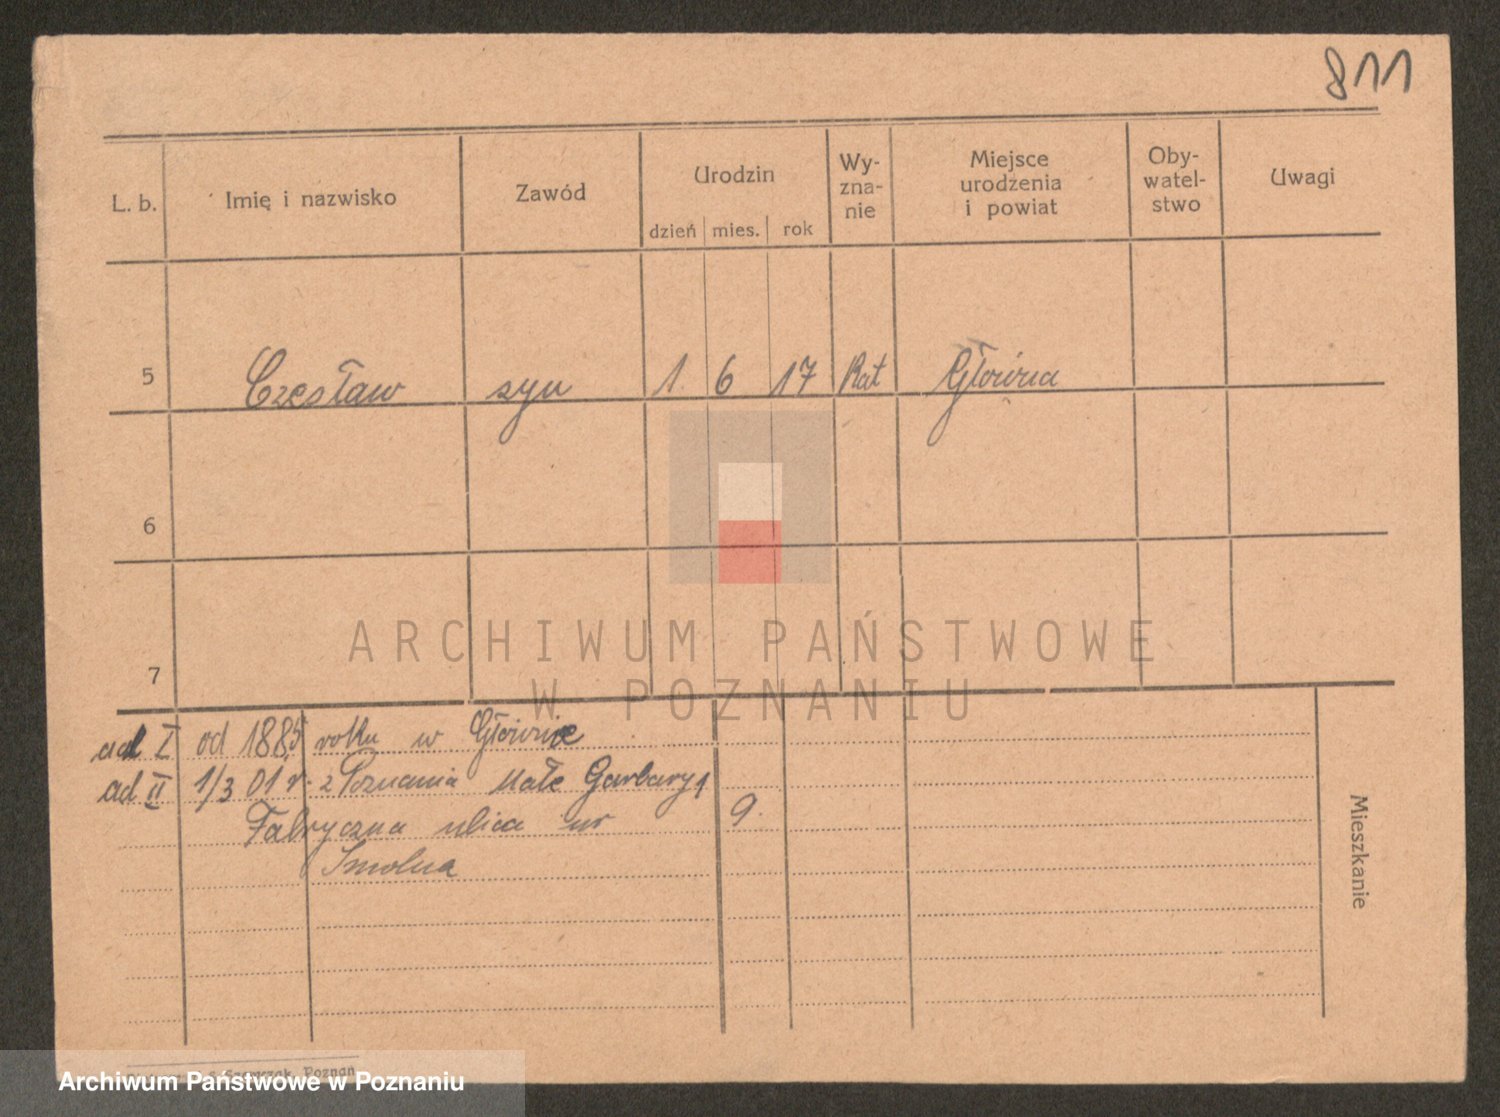 811
L. b. Imię i nazwisko Zawód Urodzin dzień mies. rok Wy-zna-nie Miejsce urodzenia i powiat Oby-watel-stwo Uwagi
5 Czesław syn 1. 6 17 Kat Główna
6
7
ad I od 1885 roku w Głównie
ad II 1/3 01 r. z Poznania Małe Garbary 1
Fabryczna ulica nr 9.
Smolna
Mieszkanie
Szewczak, Poznań
ARCHIWUM PAŃSTWOWE
W POZNANIU
Archiwum Państwowe w Poznaniu